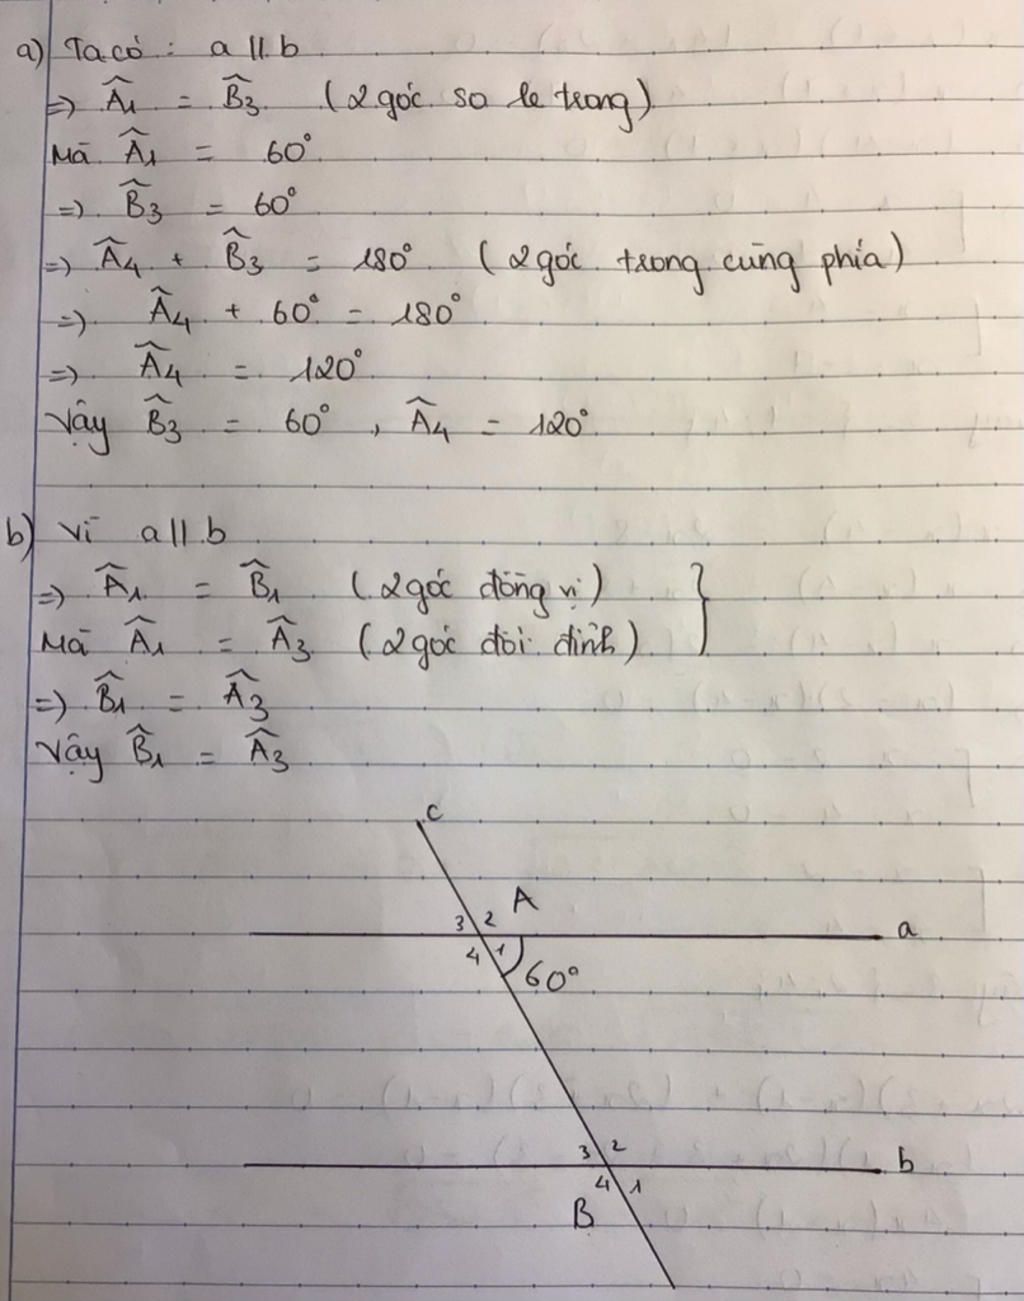 a) Ta có : a // b
=> Â₁ = B̂₃ (2 góc so le trong)
Mà Â₁ = 60°
=> B̂₃ = 60°
=> Â₄ + B̂₃ = 180° (2 góc trong cùng phía)
=> Â₄ + 60° = 180°
=> Â₄ = 120°
Vậy B̂₃ = 60° , Â₄ = 120°
b) Vì a // b
=> Â₁ = B̂₁ (2 góc đồng vị) }
Mà Â₁ = Â₃ (2 góc đối đỉnh)
=> B̂₁ = Â₃
Vậy B̂₁ = Â₃
c
A
3 2
a
4 1
60°
3 2
b
4 1
B